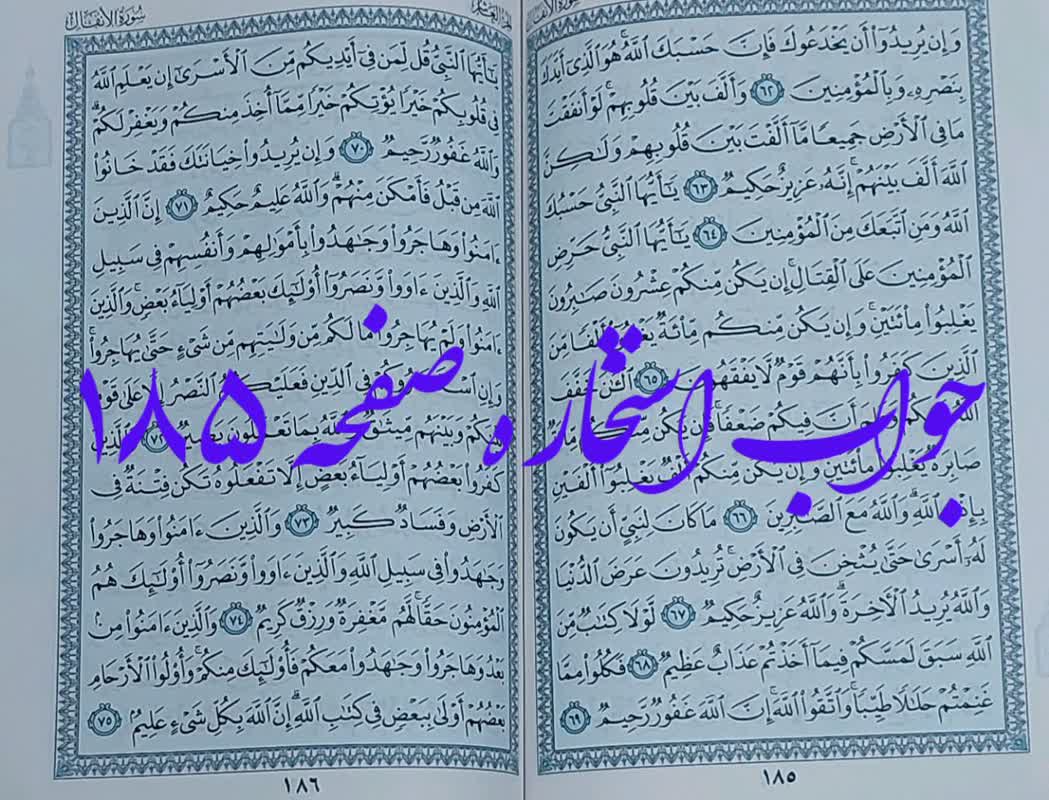 سُورَةُ الأَنفَال
وَإِن يُرِيدُوٓا۟ أَن يَخْدَعُوكَ فَإِنَّ حَسْبَكَ ٱللَّهُ ۚ هُوَ ٱلَّذِىٓ أَيَّدَكَ
بِنَصْرِهِۦ وَبِٱلْمُؤْمِنِينَ ٦٢ وَأَلَّفَ بَيْنَ قُلُوبِهِمْ ۚ لَوْ أَنفَقْتَ
مَا فِى ٱلْأَرْضِ جَمِيعًا مَّآ أَلَّفْتَ بَيْنَ قُلُوبِهِمْ وَلَٰكِنَّ
ٱللَّهَ أَلَّفَ بَيْنَهُمْ ۚ إِنَّهُۥ عَزِيزٌ حَكِيمٌ ٦٣ يَٰٓأَيُّهَا ٱلنَّبِىُّ حَسْبُكَ
ٱللَّهُ وَمَنِ ٱتَّبَعَكَ مِنَ ٱلْمُؤْمِنِينَ ٦٤ يَٰٓأَيُّهَا ٱلنَّبِىُّ حَرِّضِ
ٱلْمُؤْمِنِينَ عَلَى ٱلْقِتَالِ ۚ إِن يَكُن مِّنكُمْ عِشْرُونَ صَٰبِرُونَ
يَغْلِبُوا۟ مِا۟ئَتَيْنِ ۚ وَإِن يَكُن مِّنكُم مِّا۟ئَةٌ يَغْلِبُوٓا۟ أَلْفًا مِّنَ
ٱلَّذِينَ كَفَرُوا۟ بِأَنَّهُمْ قَوْمٌ لَّا يَفْقَهُونَ ٦٥ ٱلْـَٰٔنَ خَفَّفَ
ٱللَّهُ عَنكُمْ وَعَلِمَ أَنَّ فِيكُمْ ضَعْفًا ۚ فَإِن يَكُن مِّنكُم مِّا۟ئَةٌ
صَابِرَةٌ يَغْلِبُوا۟ مِا۟ئَتَيْنِ ۚ وَإِن يَكُن مِّنكُمْ أَلْفٌ يَغْلِبُوٓا۟ أَلْفَيْنِ
بِإِذْنِ ٱللَّهِ ۗ وَٱللَّهُ مَعَ ٱلصَّٰبِرِينَ ٦٦ مَا كَانَ لِنَبِىٍّ أَن يَكُونَ
لَهُۥٓ أَسْرَىٰ حَتَّىٰ يُثْخِنَ فِى ٱلْأَرْضِ ۚ تُرِيدُونَ عَرَضَ ٱلدُّنْيَا
وَٱللَّهُ يُرِيدُ ٱلْـَٔاخِرَةَ ۗ وَٱللَّهُ عَزِيزٌ حَكِيمٌ ٦٧ لَّوْلَا كِتَٰبٌ مِّنَ
ٱللَّهِ سَبَقَ لَمَسَّكُمْ فِيمَآ أَخَذْتُمْ عَذَابٌ عَظِيمٌ ٦٨ فَكُلُوا۟ مِمَّا
غَنِمْتُمْ حَلَٰلًا طَيِّبًا ۚ وَٱتَّقُوا۟ ٱللَّهَ ۚ إِنَّ ٱللَّهَ غَفُورٌ رَّحِيمٌ ٦٩
١٨٥
سُورَةُ الأَنفَال
يَٰٓأَيُّهَا ٱلنَّبِىُّ قُل لِّمَن فِىٓ أَيْدِيكُم مِّنَ ٱلْأَسْرَىٰٓ إِن يَعْلَمِ ٱللَّهُ
فِى قُلُوبِكُمْ خَيْرًا يُؤْتِكُمْ خَيْرًا مِّمَّآ أُخِذَ مِنكُمْ وَيَغْفِرْ لَكُمْ ۗ
وَٱللَّهُ غَفُورٌ رَّحِيمٌ ٧٠ وَإِن يُرِيدُوا۟ خِيَانَتَكَ فَقَدْ خَانُوا۟
ٱللَّهَ مِن قَبْلُ فَأَمْكَنَ مِنْهُمْ ۗ وَٱللَّهُ عَلِيمٌ حَكِيمٌ ٧١ إِنَّ ٱلَّذِينَ
ءَامَنُوا۟ وَهَاجَرُوا۟ وَجَٰهَدُوا۟ بِأَمْوَٰلِهِمْ وَأَنفُسِهِمْ فِى سَبِيلِ
ٱللَّهِ وَٱلَّذِينَ ءَاوَوا۟ وَّنَصَرُوٓا۟ أُو۟لَٰٓئِكَ بَعْضُهُمْ أَوْلِيَآءُ بَعْضٍ ۚ وَٱلَّذِينَ
ءَامَنُوا۟ وَلَمْ يُهَاجِرُوا۟ مَا لَكُم مِّن وَلَٰيَتِهِم مِّن شَىْءٍ حَتَّىٰ يُهَاجِرُوا۟ ۚ
وَإِنِ ٱسْتَنصَرُوكُمْ فِى ٱلدِّينِ فَعَلَيْكُمُ ٱلنَّصْرُ إِلَّا عَلَىٰ قَوْمٍۭ
بَيْنَكُمْ وَبَيْنَهُم مِّيثَٰقٌ ۗ وَٱللَّهُ بِمَا تَعْمَلُونَ بَصِيرٌ ٧٢ وَٱلَّذِينَ
كَفَرُوا۟ بَعْضُهُمْ أَوْلِيَآءُ بَعْضٍ ۚ إِلَّا تَفْعَلُوهُ تَكُن فِتْنَةٌ فِى
ٱلْأَرْضِ وَفَسَادٌ كَبِيرٌ ٧٣ وَٱلَّذِينَ ءَامَنُوا۟ وَهَاجَرُوا۟
وَجَٰهَدُوا۟ فِى سَبِيلِ ٱللَّهِ وَٱلَّذِينَ ءَاوَوا۟ وَّنَصَرُوٓا۟ أُو۟لَٰٓئِكَ هُمُ
ٱلْمُؤْمِنُونَ حَقًّا ۚ لَّهُم مَّغْفِرَةٌ وَرِزْقٌ كَرِيمٌ ٧٤ وَٱلَّذِينَ ءَامَنُوا۟ مِنۢ
بَعْدُ وَهَاجَرُوا۟ وَجَٰهَدُوا۟ مَعَكُمْ فَأُو۟لَٰٓئِكَ مِنكُمْ ۚ وَأُو۟لُوا۟ ٱلْأَرْحَامِ
بَعْضُهُمْ أَوْلَىٰ بِبَعْضٍ فِى كِتَٰبِ ٱللَّهِ ۗ إِنَّ ٱللَّهَ بِكُلِّ شَىْءٍ عَلِيمٌۢ ٧٥
١٨٦
جواب استخاره صفحه ۱۸۵